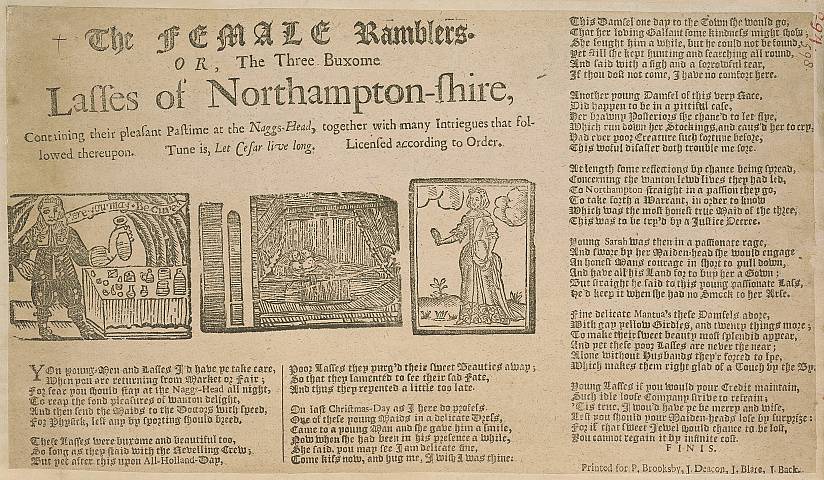 The FEMALE Ramblers.
OR, The Three Buxome
Lasses of Northampton-shire,
Containing their pleasant Pastime at the Naggs-Head, together with many Intriegues that fol-
lowed thereupon. Tune is, Let Cesar live long. Licensed according to Order.
Here you may be Cur'd
YOu young-Men and Lasses I'd have ye take care,
When you are returning from Market or Fair;
For fear you should stay at the Naggs-Head all night,
To reap the fond pleasures of wanton delight,
And then send the Maids to the Doctors with speed,
For Physick, lest any by sporting should breed.
These Lasses were buxome and beautiful too,
So long as they staid with the Revelling Crew;
But yet after this upon All-Holland-Day,
Poor Lasses they purg'd their sweet Beauties away;
So that they lamented to see their sad Fate,
And thus they repented a little too late.
On last Christmas-Day as I here do profess,
One of these young Maids in a delicate Dress,
Came to a young Man and she gave him a smile,
Now when she had been in his presence a while,
She said, you may see I am delicate fine,
Come kiss now, and hug me, I wish I was thine.
This Damsel one day to the Town she would go,
That her loving Gallant some kindness might show,
She sought him a while, but he could not be found,
Yet still she kept hunting and searching all round,
And said with a sigh and a sorrowful tear,
If thou dost not come, I have no comfort here.
Another young Damsel of this very Race,
Did happen to be in a pittiful case,
Her brawny Posteriors she chanc'd to let flye,
Which run down her Stockings, and caus'd her to cry,
Had ever poor Creature such fortune before,
This woful disaster doth trouble me sore.
At length some reflections by chance being spread,
Concerning the wanton lewd lives they had led,
To Northampton straight in a passion they go,
To take forth a Warrant, in order to know
Which was the most honest true Maid of the three,
This was to be try'd by a Justice Decree.
Young Sarah was then in a passionate rage,
And swore by her Maiden-head she would engage
An honest Mans courage in short to pull down,
And have all his Land for to buy her a Gown;
But straight he said to this young passionate Lass,
He'd keep it when she had no Smock to her Arse.
Fine delicate Mantua's these Damsels adore,
With gay yellow Girdles, and twenty things more;
To make their sweet beauty most splendid appear,
And yet these poor Lasses are never the near;
Alone without Husbands they're forced to lye,
Which makes them right glad of a Touch by the By.
Young Lasses if you would your Credit maintain,
Such idle loose Company strive to refrain;
'Tis true, I would have ye be merry and wise,
Lest you should your Maiden-heads lose by surprize:
For if that sweet Jewel should chance to be lost,
You cannot regain it by infinite cost.
FINIS.
Printed for P. Brooksby, J. Deacon, J. Blare, J. Back.